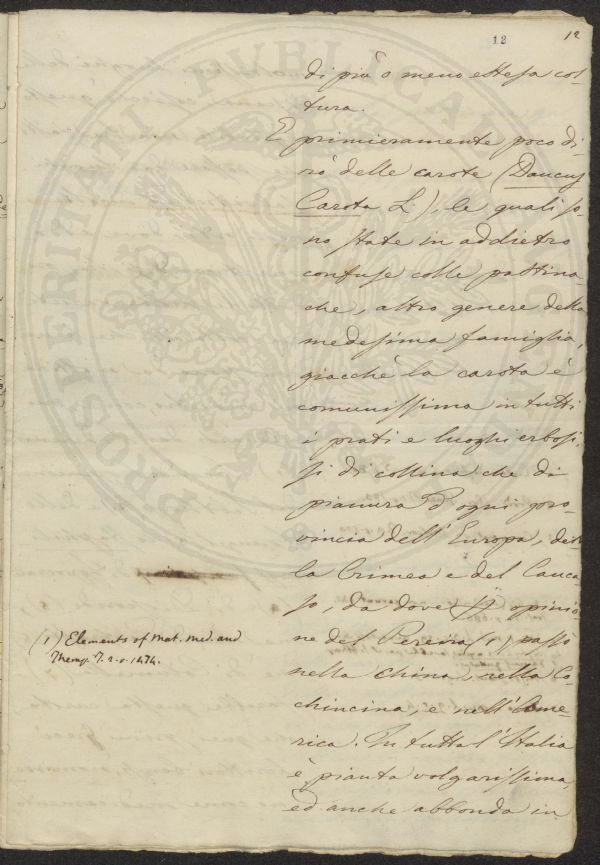 13 12
di più o meno estesa col
tura.
E primieramente poco di
rò delle carote (Daucus
Carota L.), le quali so
no state in addietro
confuse colle pastina
che, altro genere della
medesima famiglia,
giacchè la carota è
comunissima in tutti
i prati e luoghi erbosi,
sì di collina che di
pianura d'ogni pro
vincia dell'Europa, del
la Crimea e del Cauca
so, da dove opinio
ne del Pereira (1) passò
nella China, nella Co
chincina, e nell'Ame
rica. In tutta l'Italia
è pianta volgarissima,
ed anche abbonda in
(1) Elements of Mat. Med. and
Therap. T. 2. p. 1474.
PROSPERITATI PVBLICAE